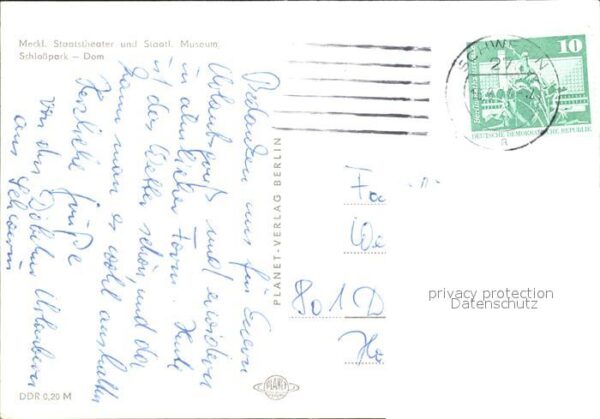 Meckl. Staatstheater und Staatl. Museum,
Schloßpark — Dom
Bedanken uns für Euern
Urlaubsgruß und erwidern
in ähnlicher Form. Heute
ist das Wetter schön, und da
kann man es wohl aushalten
Herzliche Grüße
von den Döbelner Urlaubern
aus Schwerin
DDR 0,20 M
PLANET-VERLAG BERLIN
PLANET
SCHWERIN
27
10
DEUTSCHE DEMOKRATISCHE REPUBLIK
Fa
We
801 D
He
privacy protection
Datenschutz